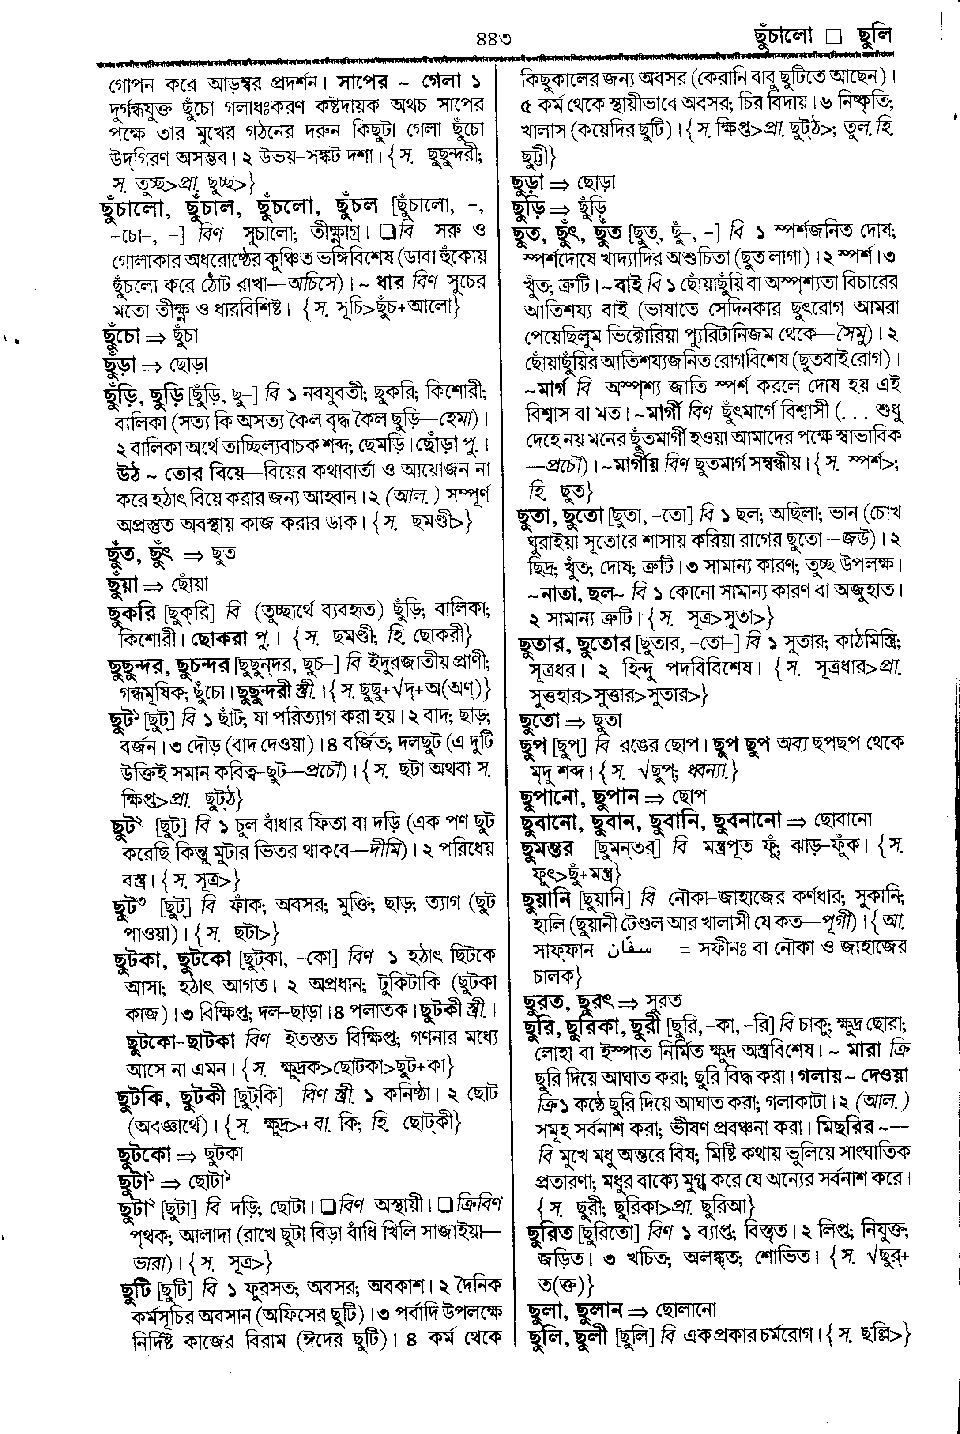 ৪৪৩
ছুঁচালো □ ছুলি
গোপন করে আড়ম্বর প্রদর্শন। সাপের ~ গেলা ১
দুর্গন্ধযুক্ত ছুঁচো গলাধঃকরণ কষ্টদায়ক অথচ সাপের
পক্ষে তার মুখের গঠনের দরুন কিছুটা গেলা ছুঁচো
উদ্‌গিরণ অসম্ভব। ২ উভয়-সঙ্কট দশা। {স. ছুছুন্দরী;
স. তুচ্ছ>প্রা. ছুচ্ছ>}
ছুঁচালো, ছুঁচাল, ছুঁচলো, ছুঁচল [ছুঁচালো, -,
-চো-, -] বিণ সূচালো; তীক্ষ্ণাগ্র। ❑বি সরু ও
গোলাকার অধরোষ্ঠের কুঞ্চিত ভঙ্গিবিশেষ (ডাবা হুঁকোয়
ছুঁচলো করে ঠোঁট রাখা—অচিসে)। ~ ধার বিণ সূচের
মতো তীক্ষ্ণ ও ধারবিশিষ্ট। {স. সূচি>ছুঁচ+আলো}
ছুঁচো ⇒ ছুঁচা
ছুঁড়া ⇒ ছোড়া
ছুঁড়ি, ছুড়ি [ছুঁড়ি, ছু-] বি ১ নবযুবতী; ছুকরি; কিশোরী;
বালিকা (সত্য কি অসত্য কৈল বৃদ্ধ কৈল ছুড়ি—হেমা)।
২ বালিকা অর্থে তাচ্ছিল্যবাচক শব্দ; ছেমড়ি। ছোঁড়া পু.।
উঠ ~ তোর বিয়ে—বিয়ের কথাবার্তা ও আয়োজন না
করে হঠাৎ বিয়ে করার জন্য আহ্বান। ২ (আল.) সম্পূর্ণ
অপ্রস্তুত অবস্থায় কাজ করার ডাক। {স. ছমণ্ডী>}
ছুঁত, ছুঁৎ ⇒ ছুত
ছুঁয়া ⇒ ছোঁয়া
ছুকরি [ছুক্‌রি] বি (তুচ্ছার্থে ব্যবহৃত) ছুঁড়ি; বালিকা;
কিশোরী। ছোকরা পু.। {স. ছমণ্ডী; হি. ছোকরী}
ছুছুন্দর, ছুচন্দর [ছুছুন্‌দর, ছুচ-] বি ইঁদুরজাতীয় প্রাণী;
গন্ধমূষিক; ছুঁচো। ছুছুন্দরী স্ত্রী.। {স. ছুছু+√দৃ+অ(অণ্)}
ছুট১ [ছুট্] বি ১ ছাঁট; যা পরিত্যাগ করা হয়। ২ বাদ; ছাড়;
বর্জন। ৩ দৌড় (বাদ দেওয়া)। ৪ বর্জিত; দলছুট (এ দুটি
উক্তিই সমান কবিত্ব-ছুট—প্রচৌ)। {স. ছটা অথবা স.
ক্ষিপ্ত>প্রা. ছুট্ঠ}
ছুট২ [ছুট্] বি ১ চুল বাঁধার ফিতা বা দড়ি (এক পণ ছুট
করেছি কিন্তু মুটার ভিতর থাকবে—দীমি)। ২ পরিধেয়
বস্ত্র। {স. সূত্র>}
ছুট৩ [ছুট্] বি ফাঁক; অবসর; মুক্তি; ছাড়; ত্যাগ (ছুট
পাওয়া)। {স. ছটা>}
ছুটকা, ছুটকো [ছুট্‌কা, -কো] বিণ ১ হঠাৎ ছিটকে
আসা; হঠাৎ আগত। ২ অপ্রধান; টুকিটাকি (ছুটকা
কাজ)। ৩ বিক্ষিপ্ত; দল-ছাড়া। ৪ পলাতক। ছুটকী স্ত্রী.।
ছুটকো-ছাটকা বিণ ইতস্তত বিক্ষিপ্ত; গণনার মধ্যে
আসে না এমন। {স. ক্ষুদ্রক>ছোটকা>ছুট+কা}
ছুটকি, ছুটকী [ছুট্‌কি] বিণ স্ত্রী. ১ কনিষ্ঠা। ২ ছোট
(অবজ্ঞার্থে)। {স. ক্ষুদ্র>+বা. কি; হি. ছোট্‌কী}
ছুটকো ⇒ ছুটকা
ছুটা১ ⇒ ছোটা১
ছুটা২ [ছুটা] বি দড়ি; ছোটা। ❑বিণ অস্থায়ী। ❑ক্রিবিণ
পৃথক; আলাদা (রাখে ছুটা বিড়া বাঁধি খিলি সাজাইয়া—
ভারা)। {স. সূত্র>}
ছুটি [ছুটি] বি ১ ফুরসত; অবসর; অবকাশ। ২ দৈনিক
কর্মসূচির অবসান (অফিসের ছুটি)। ৩ পর্বাদি উপলক্ষে
নির্দিষ্ট কাজের বিরাম (ঈদের ছুটি)। ৪ কর্ম থেকে
কিছুকালের জন্য অবসর (কেরানি বাবু ছুটিতে আছেন)।
৫ কর্ম থেকে স্থায়ীভাবে অবসর; চির বিদায়। ৬ নিষ্কৃতি;
খালাস (কয়েদির ছুটি)। {স. ক্ষিপ্ত>প্রা. ছুট্ঠ>; তুল. হি.
ছুট্টী}
ছুড়া ⇒ ছোড়া
ছুড়ি ⇒ ছুঁড়ি
ছুত, ছুঁৎ, ছুঁত [ছুত্, ছুঁ-, -] বি ১ স্পর্শজনিত দোষ;
স্পর্শদোষে খাদ্যাদির অশুচিতা (ছুত লাগা)। ২ স্পর্শ। ৩
খুঁত; ত্রুটি। ~বাই বি ১ ছোঁয়াছুঁয়ি বা অস্পৃশ্যতা বিচারের
আতিশয্য বাই (ভাষাতে সেদিনকার ছুৎরোগ আমরা
পেয়েছিলুম ভিক্টোরিয়া প্যুরিটানিজম থেকে—সৈমু)। ২
ছোঁয়াছুঁয়ির আতিশয্যজনিত রোগবিশেষ (ছুতবাই রোগ)।
~মার্গ বি অস্পৃশ্য জাতি স্পর্শ করলে দোষ হয় এই
বিশ্বাস বা মত। ~মার্গী বিণ ছুঁৎমার্গে বিশ্বাসী (. . . শুধু
দেহে নয় মনের ছুঁতমার্গী হওয়া আমাদের পক্ষে স্বাভাবিক
—প্রচৌ)। ~মার্গীয় বিণ ছুতমার্গ সম্বন্ধীয়। {স. স্পর্শ>;
হি. ছুত}
ছুতা, ছুতো [ছুতা, -তো] বি ১ ছল; অছিলা; ভান (চোখ
ঘুরাইয়া সূতোরে শাসায় করিয়া রাগের ছুতো —জউ)। ২
ছিদ্র; খুঁত; দোষ; ত্রুটি। ৩ সামান্য কারণ; তুচ্ছ উপলক্ষ।
~নাতা, ছল~ বি ১ কোনো সামান্য কারণ বা অজুহাত।
২ সামান্য ত্রুটি। {স. সূত্র>সুতা>}
ছুতার, ছুতোর [ছুতার, -তো-] বি ১ সুতার; কাঠমিস্ত্রি;
সূত্রধর। ২ হিন্দু পদবিবিশেষ। {স. সূত্রধার>প্রা.
সুত্তহার>সুত্তার>সুতার>}
ছুতো ⇒ ছুতা
ছুপ [ছুপ্] বি রঙের ছোপ। ছুপ ছুপ অব্য ছপছপ থেকে
মৃদু শব্দ। {স. √ছুপ্; ধ্বন্যা.}
ছুপানো, ছুপান ⇒ ছোপ
ছুবানো, ছুবান, ছুবানি, ছুবনানো ⇒ ছোবানো
ছুমন্তর [ছুমন্‌তর্] বি মন্ত্রপূত ফুঁ, ঝাড়-ফুঁক। {স.
ফুৎ>ছুঁ+মন্ত্র}
ছুয়ানি [ছুয়ানি] বি নৌকা-জাহাজের কর্ণধার; সুকানি;
হালি (ছুয়ানী টেণ্ডল আর খালাসী যে কত—পূগী)। {আ.
সাফ্‌ফান سفان = সফীনঃ বা নৌকা ও জাহাজের
চালক}
ছুরত, ছুরৎ ⇒ সুরত
ছুরি, ছুরিকা, ছুরী [ছুরি, -কা, -রি] বি চাকু; ক্ষুদ্র ছোরা;
লোহা বা ইস্পাত নির্মিত ক্ষুদ্র অস্ত্রবিশেষ। ~ মারা ক্রি
ছুরি দিয়ে আঘাত করা; ছুরি বিদ্ধ করা। গলায় ~ দেওয়া
ক্রি ১ কণ্ঠে ছুরি দিয়ে আঘাত করা; গলাকাটা। ২ (আল.)
সমূহ সর্বনাশ করা; ভীষণ প্রবঞ্চনা করা। মিছরির ~—
বি মুখে মধু অন্তরে বিষ; মিষ্টি কথায় ভুলিয়ে সাংঘাতিক
প্রতারণা; মধুর বাক্যে মুগ্ধ করে যে অন্যের সর্বনাশ করে।
{স. ছুরী; ছুরিকা>প্রা. ছুরিআ}
ছুরিত [ছুরিতো] বিণ ১ ব্যাপ্ত; বিস্তৃত। ২ লিপ্ত; নিযুক্ত;
জড়িত। ৩ খচিত; অলঙ্কৃত; শোভিত। {স. √ছুর্+
ত(ক্ত)}
ছুলা, ছুলান ⇒ ছোলানো
ছুলি, ছুলী [ছুলি] বি একপ্রকার চর্মরোগ। {স. ছল্লি>}